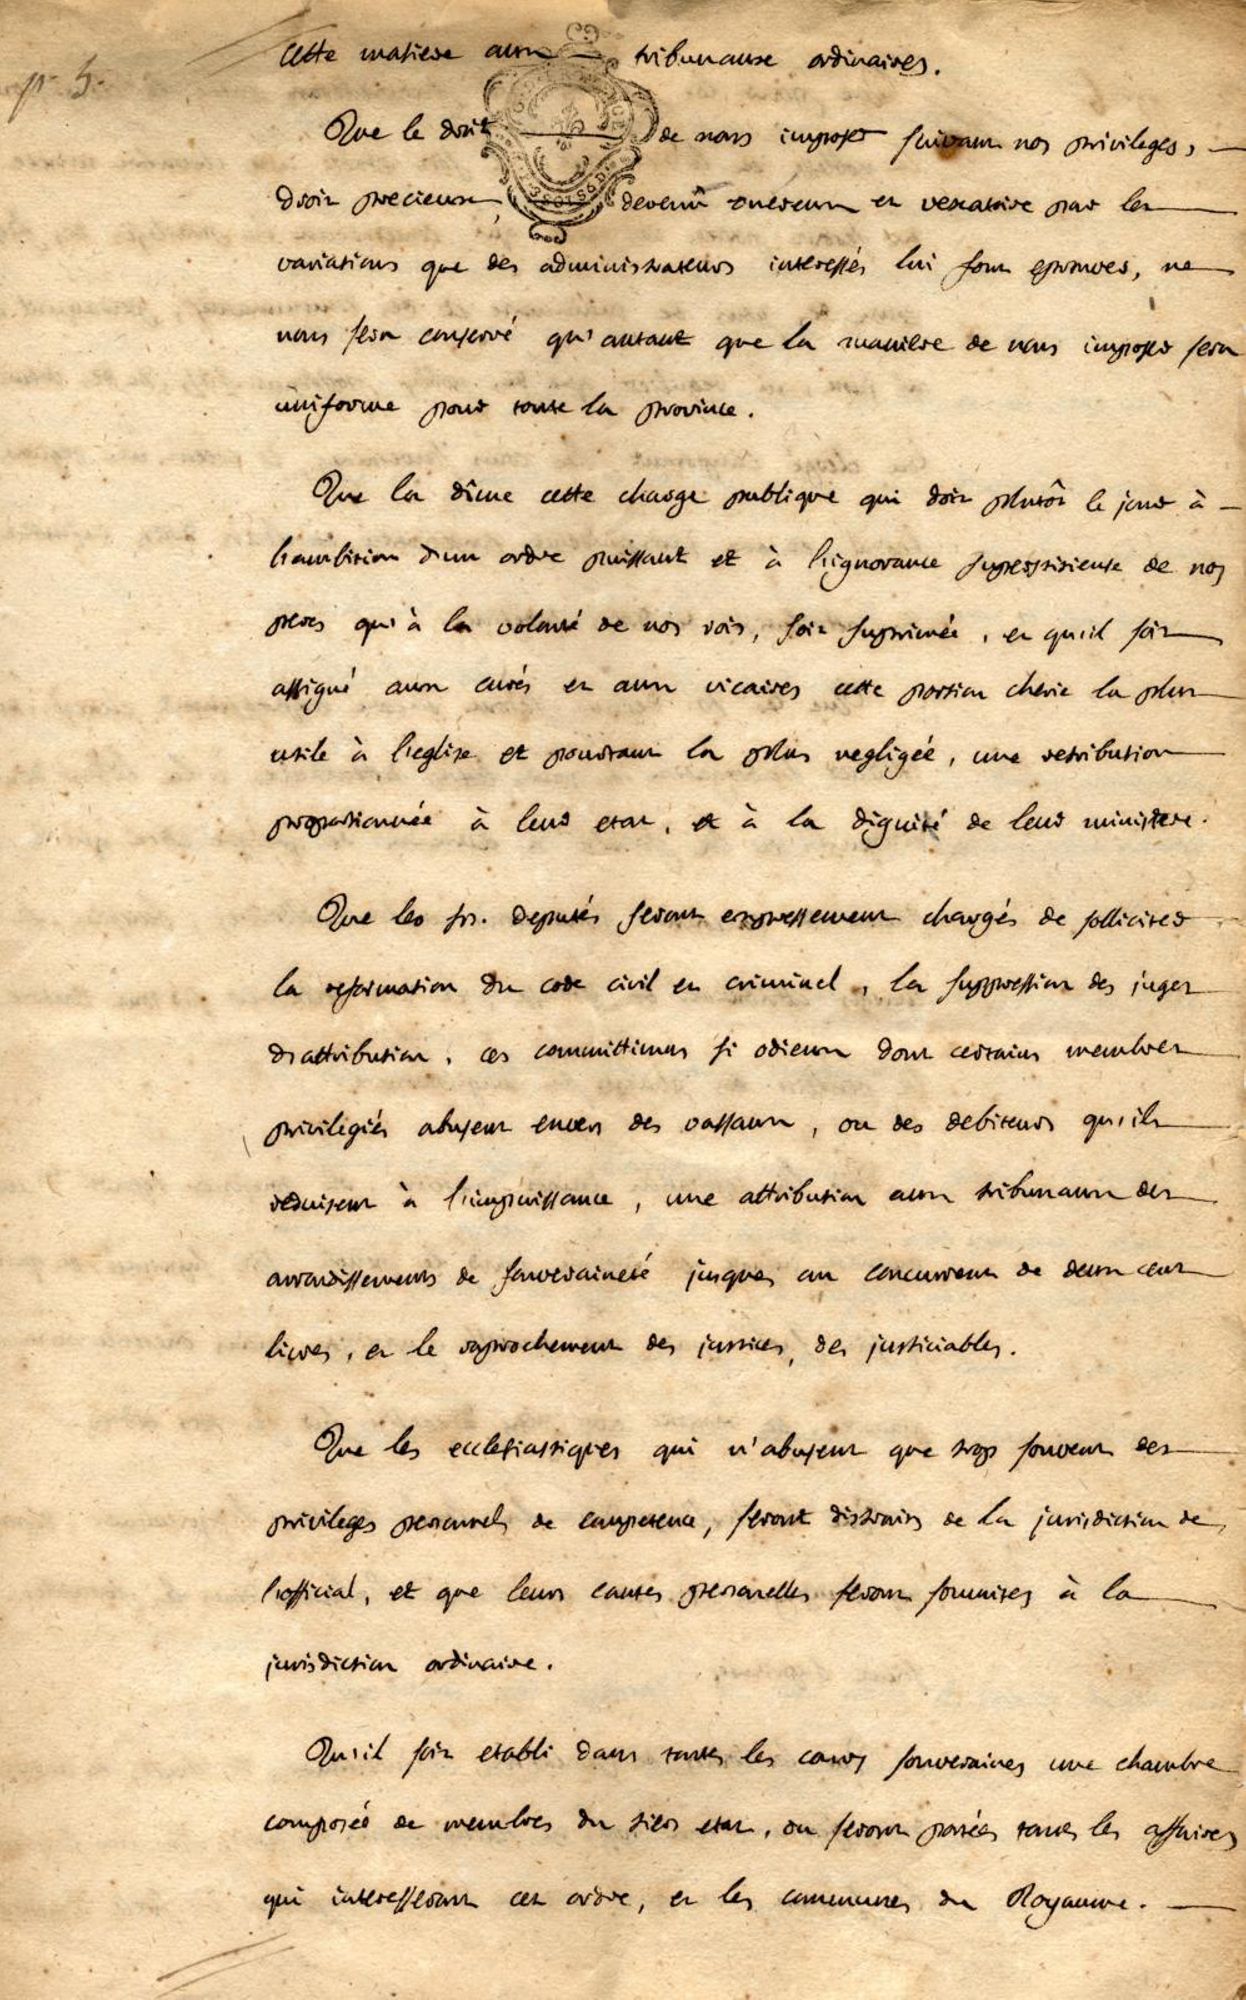 p. 5.
cette matiere aux tribunaux ordinaires.
Que le droit de nous imposer suivant nos privileges,
droit precieux, devenu onéreux et vexatoire par les
variations que des administrateurs interessés lui font eprouver, ne
nous sera conservé qu'autant que la maniere de nous imposer sera
uniforme pour toute la province.
Que la dîme cette charge publique qui doit plutôt le jour à
l'ambition d'un ordre puissant et à l'ignorance superstitieuse de nos
peres qu'à la volonté de nos rois, soit suprimée, et qu'il soit
assigné aux curés et aux vicaires cette portion cherie la plus
utile à l'eglise et pourtant la plus negligée, une retribution
proportionnée à leur etat, et à la dignité de leur ministere.
Que les srs. deputés seront expressement chargés de solliciter
la reformation du code civil et criminel, la suppression des juges
d'attribution, ces committimus si odieux dont certains membres
privilegiés abusent envers des vassaux, ou des debiteurs qu'ils
reduisent à l'impuissance, une attribution aux tribunaux des
arrondissements de souveraineté jusques au concurrent de deux cent
livres, et le raprochement des justices, des justiciables.
Que les ecclesiastiques qui n'abusent que trop souvent des
privileges personnels de competence, seront distraits de la jurisdiction de
l'official, et que leurs causes personelles seront soumises à la
jurisdiction ordinaire.
Qu'il soit etabli dans toutes les cours souveraines une chambre
composée de membres du tiers etat, ou seront portées toutes les affaires
qui interesseront cet ordre, et les communes du Royaume.